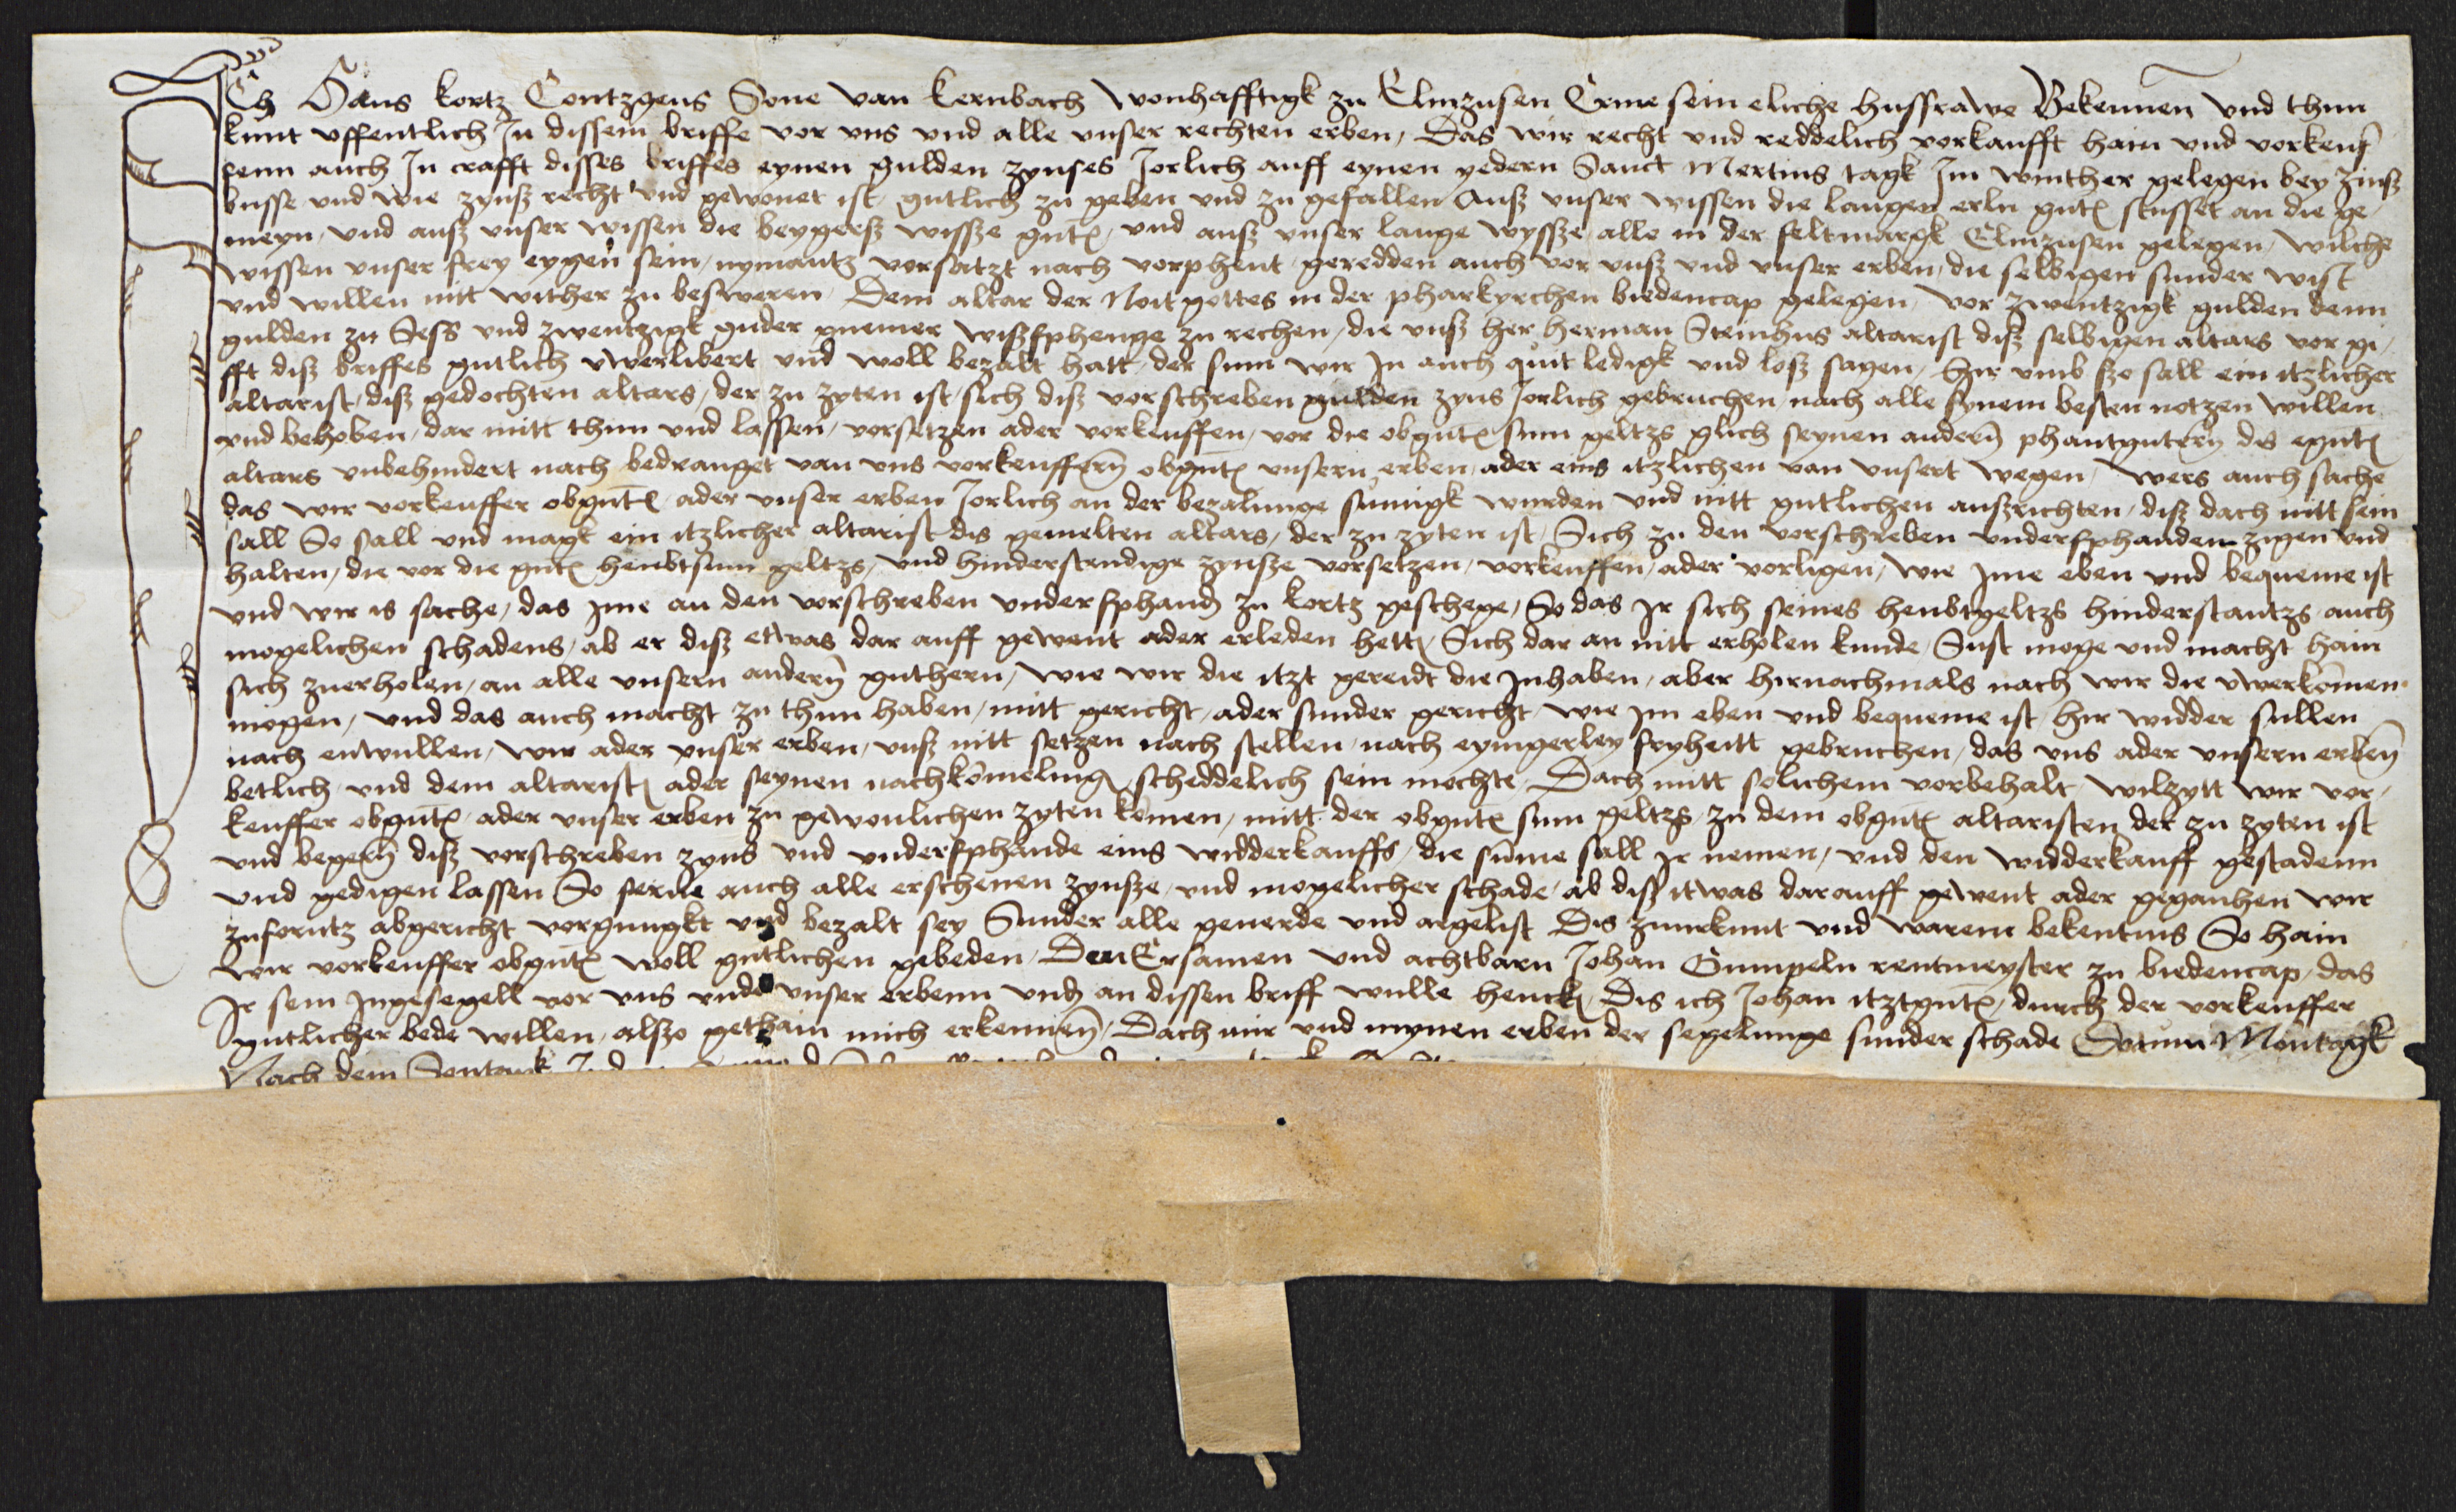 Ich Hans kortz Contzgens Sone van kernbach wonhafftigk zu Elmzusen Erme sein eliche husfrawe Bekennen und thun
kunt uffentlich In dissem briffe vor uns und alle unser rechten erben, Das wir recht und reddelich vorkaufft hain und vorkeuf
fenn auch In crafft disses briffes eynen gulden zynses Jorlich auff eynen yedern Sanct Mertins tagk Im winther gelegen bey zinsz
busse und wie zynsz recht und gewonet ist, gutlich zu geben und zu gefallen Ausz unser wissen die langen erln gnt stusset an die ge,
meyn, und ausz unser wissen die beygersz wissze gnt, und ausz unser lange wyssze alle in der feltmargk Elmzusen gelegen, wilche
wissen unser frey eygen sein, nymantz vorsatzt nach vorphent, geredden auch vor unsz und unser erben, die selbigen sunder wist
und willen nitt wither zu besweren, Dem altar der Noit gottes in der pharkyrchen biedencap gelegen, vor zwentzigk gulden denn
gulden zu Sess und zwentzigk guder gnemer wiszphenge zu rechen, die unsz her herman Steinhus altarist disz selbigen altars vor gi,
fft disz briffes gutlich uwerlibert und woll bezalt hatt, der sum wir In auch quit ledigk und losz sagen, Hir umb szo sall ein itzlicher
altarist, disz gedochten altars, der zu zyten ist, sich disz vorschreben gulden zyns Jorlich gebruchen, nach alle synem besten notzen willen
und behoben, dar mitt thun und lassen, vorsetzen ader vorkeuffen, vor die obgnt sum geltzs glich seynen andern phantgutern des egnt
altars unbehindert nach bedranget van uns vorkeuffern obgnt unsern erben, ader eins itzlichen van unsert wegen, wers auch sache
das wir vorkeuffer obgnt ader unser erben Jorlich an der bezalunge sumigk wurden und nitt gutlichen auszrichten, disz dach nitt sein
sall So sall und magk ein itzlicher altarist dis gemelten altars, der zu zyten ist, Sich zu den vorschreben underphanden zigen und
halten, die vor die gnt heubtsum geltzs, und hinderstendige zynsze vorsetzen, vorkeuffen, ader vorligen, wie Jme eben und bequeme ist
und wir is sache, das Jme an den vorschreben underphand zu kortz geschege, So das Ir sich seines heubtgeltzs hinderstantzs auch
mogelichen schadens, ab er disz etwas dar auff gewent ader erleden hett, Sich dar an nitt erholen kunde, Sust moge und macht hain
sich zuerholen, an alle unsern andern guthern, wie wir die itzt gereidt die Inhaben, aber hirnachmals nach wir die uwerkomen
mogen, und das auch macht zu thun haben, mitt gericht, ader sunder gericht, wie Im eben und bequeme ist, hir widder sullen
nach enwullen, wir ader unser erben, unsz nitt setzen nach stellen, nach eyngerley fryheitt gebruchen, das uns ader unsern erben
betlich und dem altarist ader seynen nachkomeling scheddelich sein mochte, Dach mitt solichem vorbehalt wilzytt wir vor,
keuffer obgnt, ader unser erben zu gewonlichen zyten komen, mitt der obgnt sum geltzs, zu dem obgnt altaristen der zu zyten ist
und begern disz vorschreben zyns und underphande eins widderkauffs, die sume sall Ir nemen, und den widderkauff gestadenn
und gedigen lassen So ferne auch alle erschenen zynsze, und mogelicher schade, ab disz itwas darauff gewent ader geganhen wir
zuforntz abgericht vorgnugkt und bezalt sey Sunder alle geuerde und argelist Dis zuurkunt und warem bekentnis So hain
wir vorkeuffer obgnt woll gutlichen gebeden, Den Ersamen und achtbarn Johan Gumpeln rentmeyster zu biedencap, das
Ir sein Ingesegell vor uns und unser erbenn und an dissen briff wulle henck, Dis ich Johan itztgnt, durch der vorkeuffer
gutlicher bede willen, alszo gethain mich erkennen, Dach mir und mynen erben der segelunge sunder schade Datum Montagk
Nach dem Sontagk